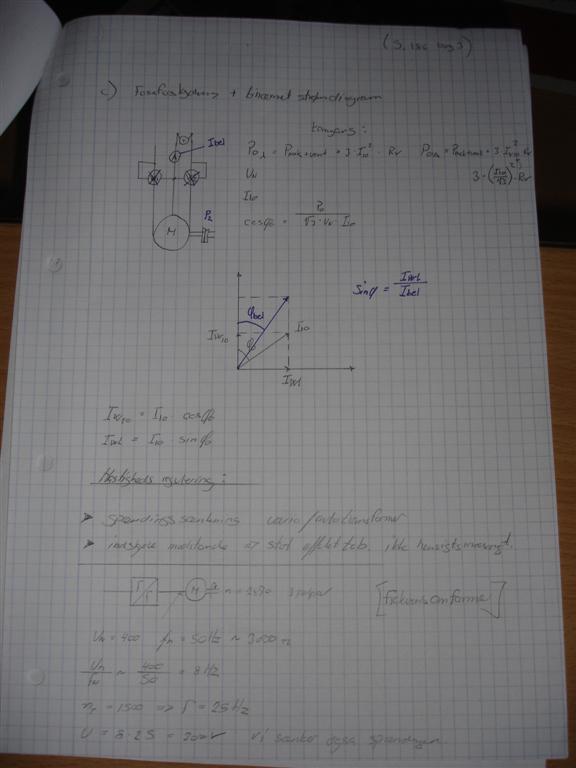 (S. 156 bog 3)
c) Forsøgsopstilling + binært strømdiagram
tomgang:
I bel
V
A
P2
M
P0λ = Pmek+vent + 3 · I10² · Rv
P0Δ = Pmek+vent + 3 · Iw10² · Rv
3 · (I10/√3)² · Rv
UN
I10
cosφ0 = P0 / √3 · UN · I10
sinφ = IWL / Ibel
φbel
IW10
I10
φ0
IWL
IW10 = I10 · cosφ0
IWL = I10 · sinφ0
Hastigheds regulering:
➤ spændingssænkning vario/autotransformer
➤ indskyde modstande => stort effekt tab. ikke hensigtsmæssigt.
f/f M n = 2850 2 polpar
[frekvensomformer]
UN = 400 fN = 50 Hz ~ 3000 n
UN/fN ~ 400/50 = 8 Hz
nr = 1500 => f = 25 Hz
U = 8 · 25 = 200 V vi sænker også spændingen